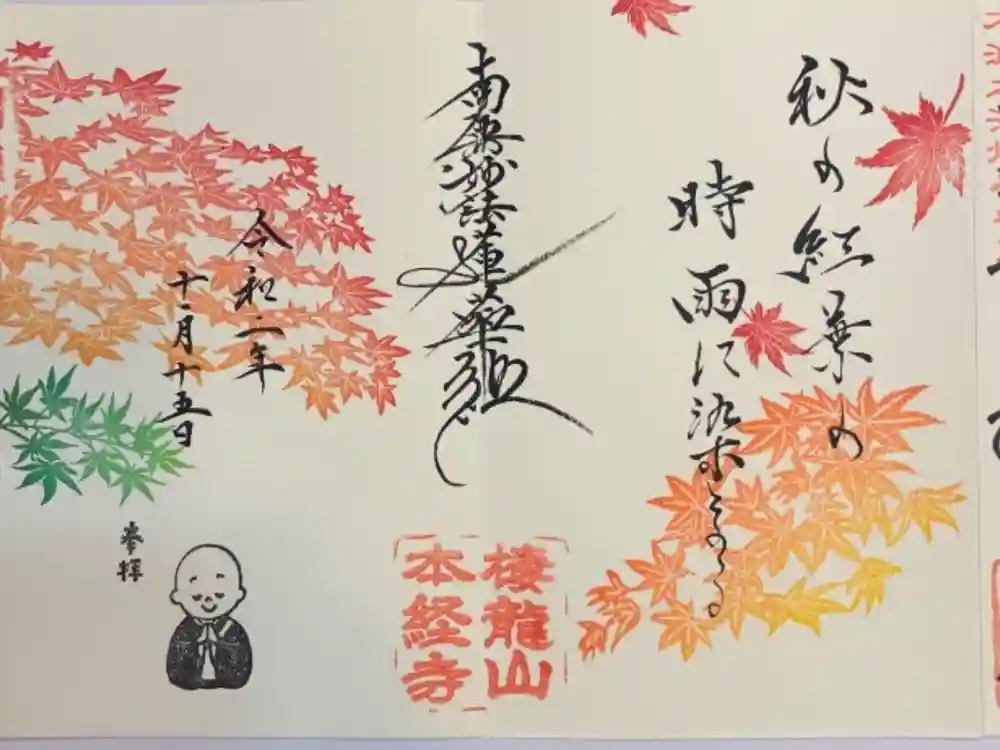 秋の紅葉の
時雨に染
南無妙法蓮華経
棲龍山
本経寺
令和二年
十一月十五日
奉拝